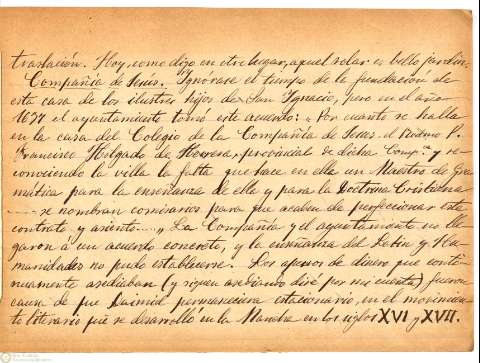 traslación. Hoy, como digo en otro lugar, aquel solar es bello jardín.
Compañía de Jesús. Ignórase el tiempo de la fundación de
esta casa de los ilustres hijos de San Ignacio, pero en el año
1677 el ayuntamiento tomó este acuerdo: "Por cuanto se halla
en la casa del Colegio de la Compañía de Jesus el Rvdmo P.
Francisco Holgado de Herrera, provincial de dicha Comp.ª y re-
conociendo la villa la falta que hace en ella un Maestro de Gra-
mática para la enseñanza de ella y para la Doctrina Cristiana
..... se nombran comisarios para que acaben de perfeccionar este
contrato y asiento....." La Compañía y el ayuntamiento no lle-
garon á un acuerdo concreto, y la enseñanza del Latin y Hu-
manidades no pudo establecerse. Los apuros de dinero que conti-
nuamente asediaban (y siguen asediando diré por mi cuenta) fueron
causa de que Daimiel permaneciera estacionario, en el movimien-
to literario que se desarrolló en la Mancha en los siglos XVI y XVII.